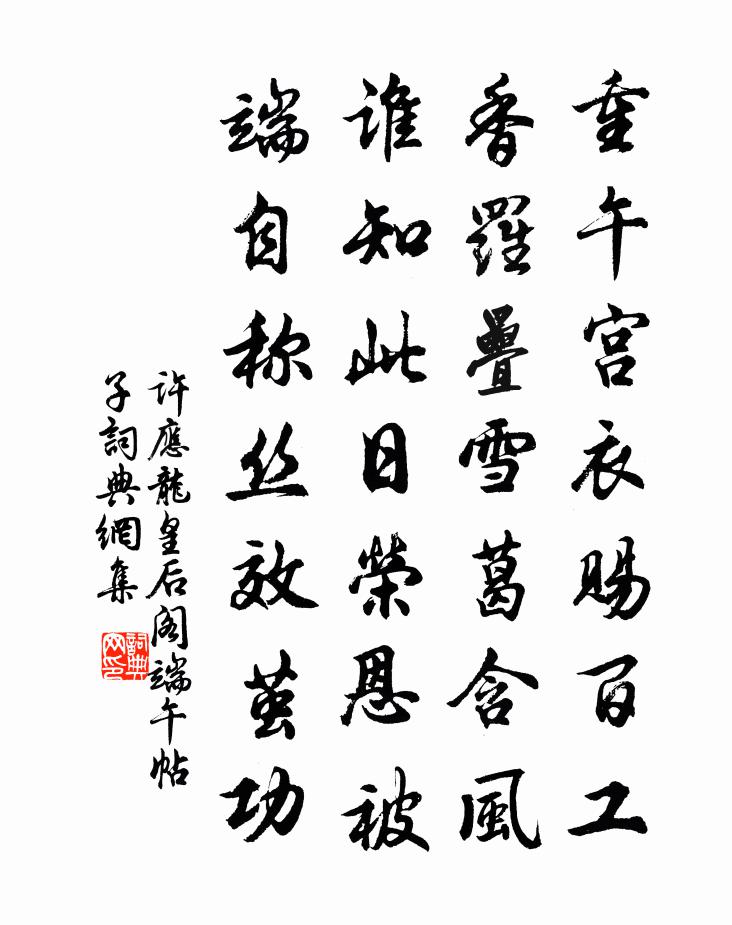 重午宮衣賜百工
香羅疊雪葛含風
誰知此日榮恩被
端自称丝效茧功
许應龍皇后阁端午帖
子詞典網集
詞典
网印